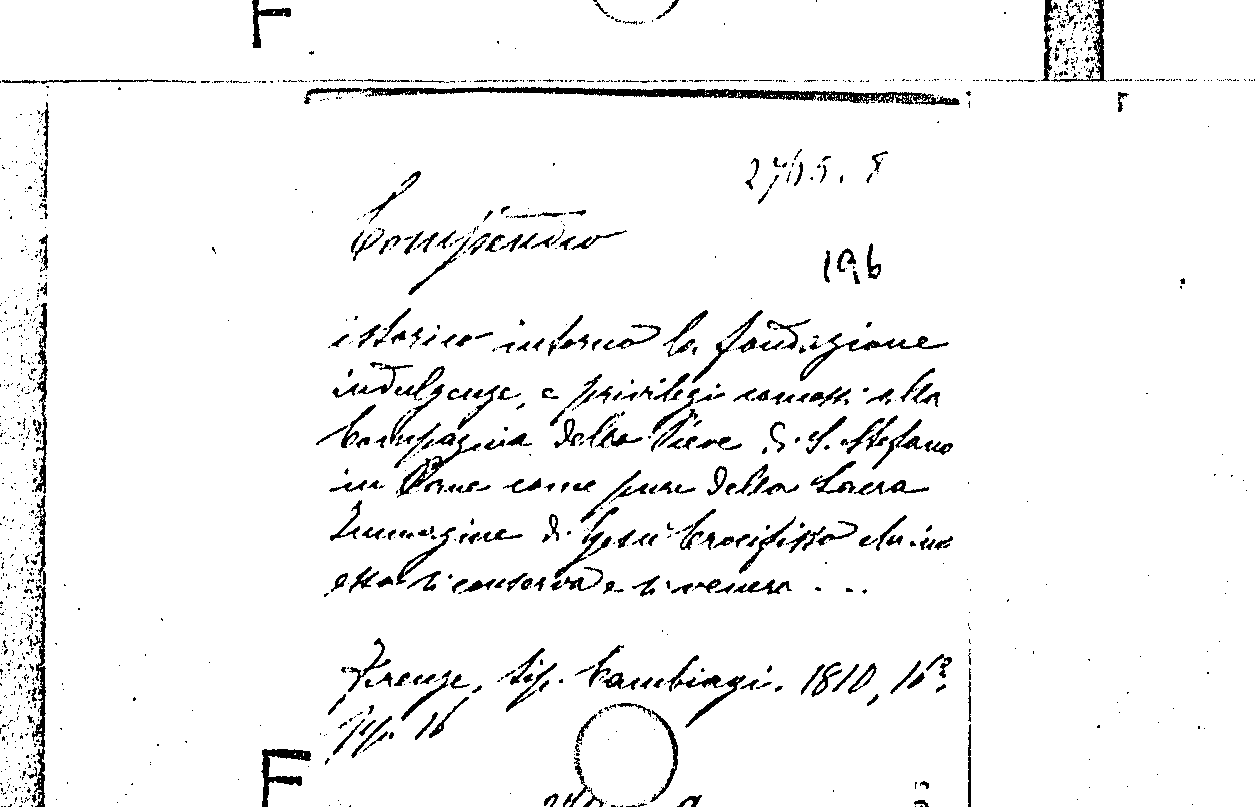 F
2765. 8
Compendio
196
istorico intorno la fondazione
indulgenze, e privilegi concessi alla
Compagnia della Pieve di S. Stefano
in Pane come pure della Sacra
Immagine di Gesù Crocifisso che in
essa si conserva e si venera ...
Firenze, tip. Cambiagi. 1810, 16º.
pp. 16
F